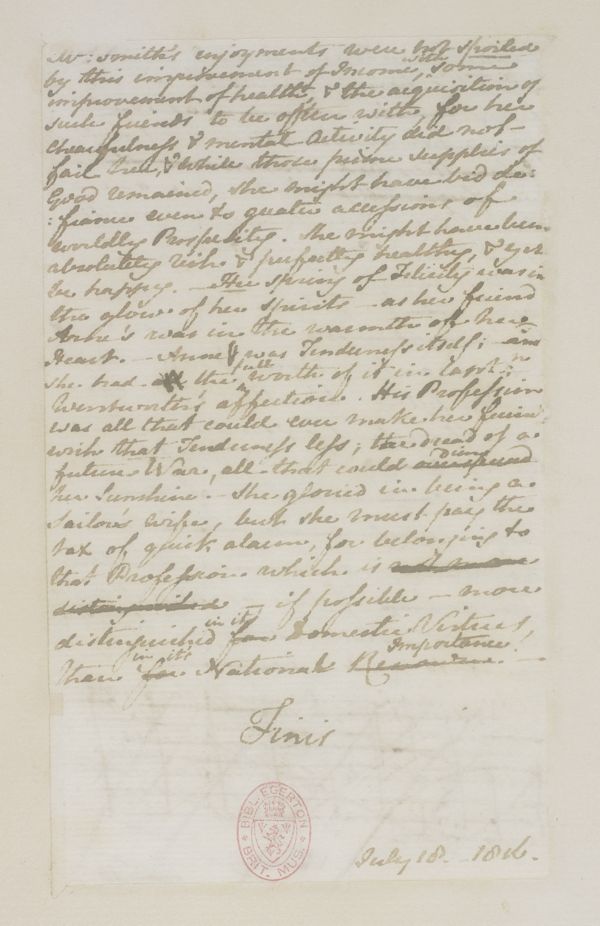 Mrs: Smith's enjoyments were not spoiled
by this improvement of Income, with some
improvement of health, & the acquisition of
such friends to be often with, for her
chearfulness & mental Activity did not
fail her, & while those prime supplies of
Good remained, she might have bid de:
:fiance even to greater accessions of
worldly Prosperity. She might have been
absolutely rich & perfectly healthy, & yet
be happy. - Her spring of Felicity was in
the glow of her Spirits - as her friend
Anne's was in the warmth of her
Heart. - Anne was Tenderness itself; - and
she had the full worth of it in Captn
Wentworth's affection. His Profession
was all that could ever make her friends
wish that Tenderness less; the dread of a
future War, all that could dim
her Sunshine. - She gloried in being a
Sailor's wife, but she must pay the
tax of quick alarm, for belonging to
that Profession which is not more
distinguished - if possible - more
distinguished for in it's Domestic Virtues,
than for in it's National Renown Importance. -
Finis
July 18. - 1816.
BIBL. EGERTON
BRIT. MUS.